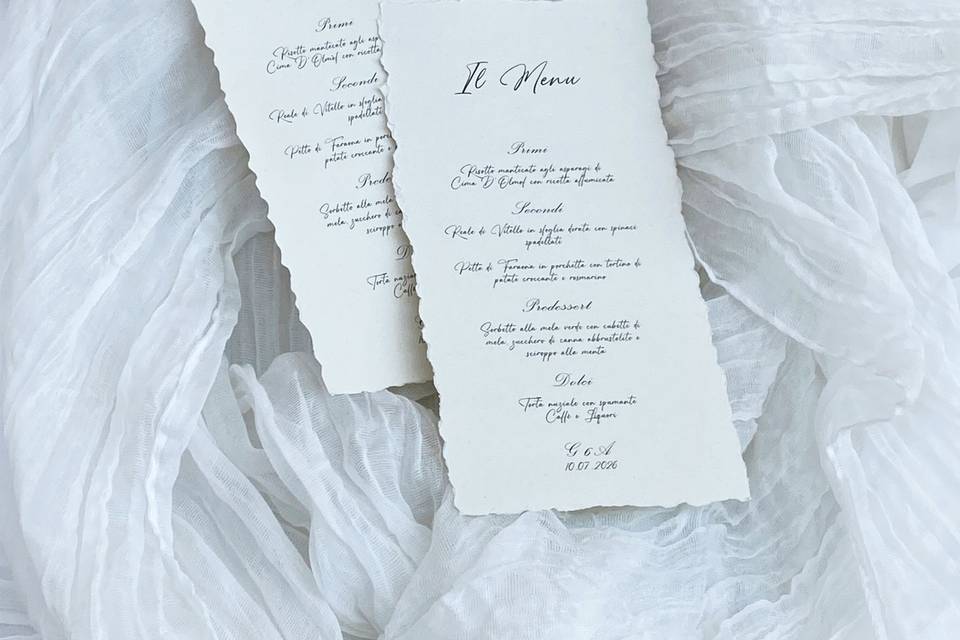 Primi
Risotto mantecato agli
Cima D'Olmof con ricotta
Secondi
Reale di Vitello in sfoglia
spadellati
Petto di Faraona in
patate croccante e
Sorbetto alla mela
mela, zucchero di
sciroppo
Torta
Caffè
Il Menu
Primi
Risotto mantecato agli asparagi di
Cima D'Olmof con ricotta affumicata
Secondi
Reale di Vitello in sfoglia dorata con spinaci
spadellati
Petto di Faraona in porchetta con tortino di
patate croccante e rosmarino
Predessert
Sorbetto alla mela verde con cubetti di
mela, zucchero di canna abbrustolito e
sciroppo alla menta
Dolci
Torta nuziale con spumante
Caffè e Liquori
G & A
10.07.2026